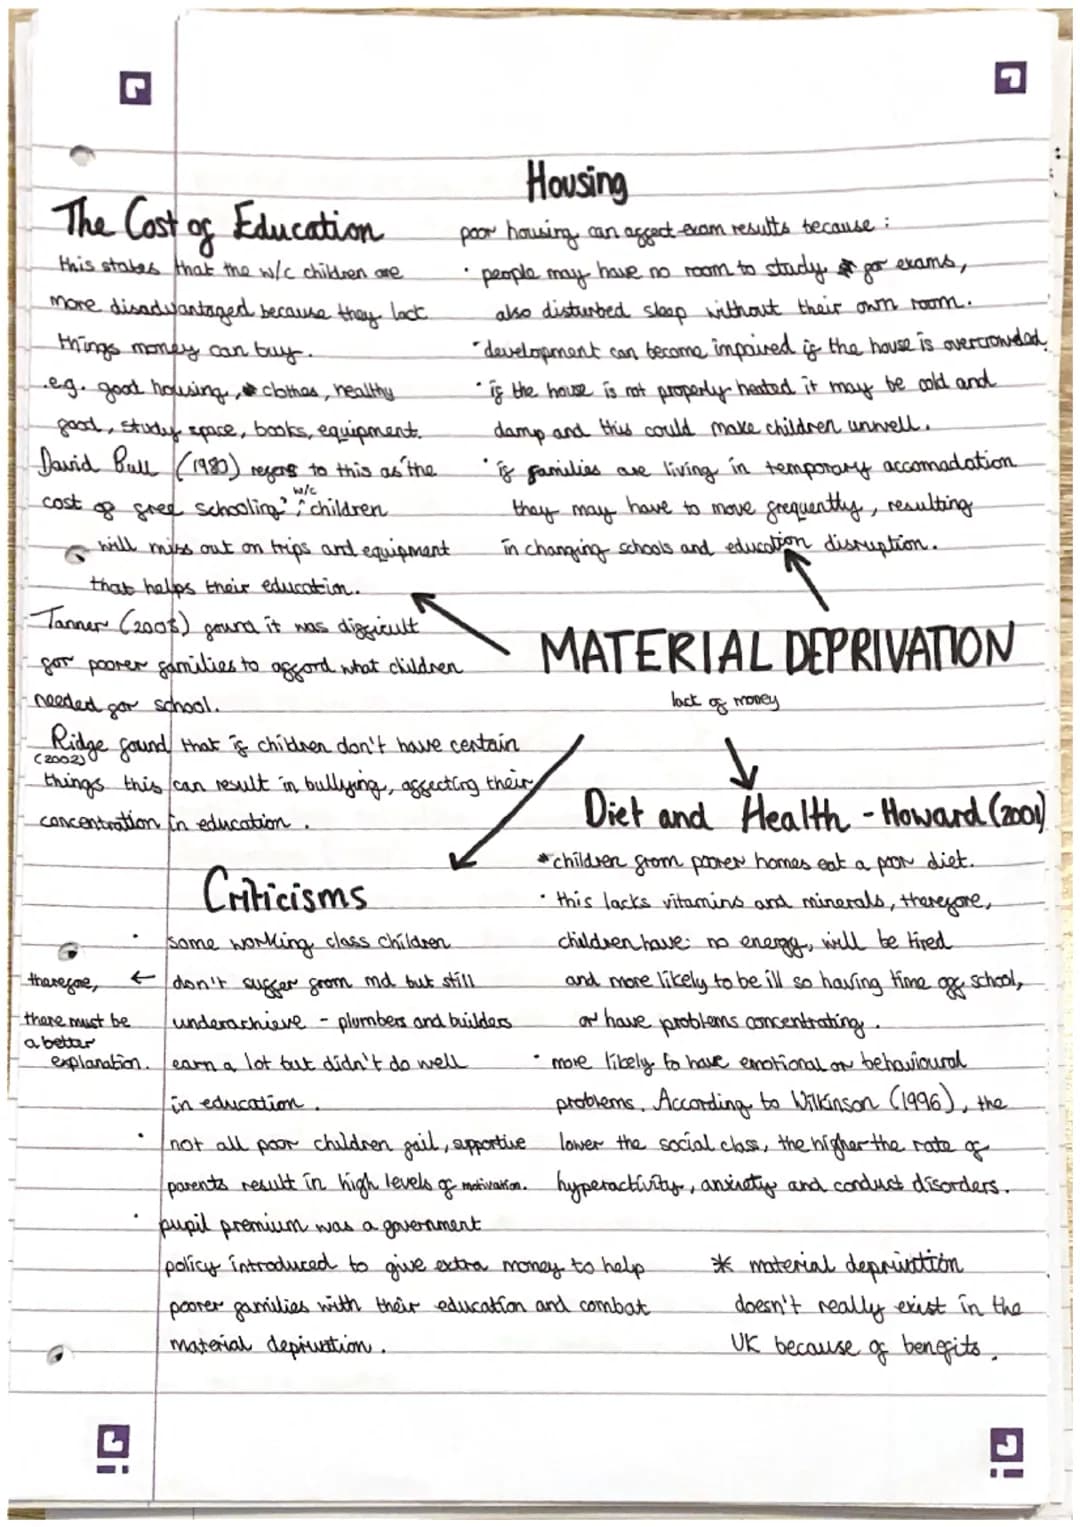 The Cost of Education
this states that the w/c children are
more disadvantaged because they lack
things money can buy.
e.g. good housing, clothes, healthy
food, study space, books, equipment.
David Bull (1980) refers to this as 'the
cost of free schooling', w/c children
will miss out on trips and equipment
that helps their education.
Tanner (2003) found it was difficult
for poorer families to afford what children
needed for school.
Ridge found that if children don't have certain
(2002)
things this can result in bullying, affecting their
concentration in education.
Housing
poor housing can affect exam results because:
· people may have no room to study for exams,
also disturbed sleep without their own room.
· development can become impaired if the house is overcrowded.
· if the house is not properly heated it may be cold and
damp and this could make children unwell.
· if families are living in temporary accomadation
they may have to move frequently, resulting
in changing schools and education disruption.
MATERIAL DEPRIVATION
lack of money
Diet and Health - Howard (2001)
* children from poorer homes eat a poor diet.
· this lacks vitamins and minerals, therefore,
children have no energy, will be tired
and more likely to be ill so having time off school,
or have problems concentrating.
· more likely to have emotional or behavioural
problems. According to Wilkinson (1996), the
lower the social class, the higher the rate of
hyperactivity, anxiety and conduct disorders.
Criticisms
· some working class children
don't suffer from md but still
underachieve - plumbers and builders
earn a lot but didn't do well
in education.
therefore, ←
there must be
a better
explanation.
· not all poor children fail, supportive
parents result in high levels of motivation.
· pupil premium was a government
policy introduced to give extra money to help
poorer families with their education and combat
material deprivation.
* material deprivation
doesn't really exist in the
UK because of benefits.